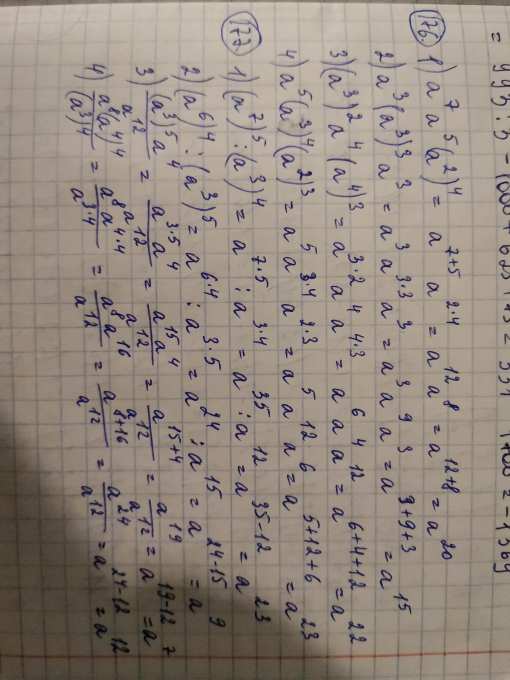 = 995 : 5 - 1000 +
176. 1) a⁷ a⁵ (a²)⁴ = a⁷⁺⁵ a²·⁴ = a¹² a⁸ = a¹²⁺⁸ = a²⁰
2) a³ (a³)³ a³ = a³ a³·³ a³ = a³ a⁹ a³ = a³⁺⁹⁺³ = a¹⁵
3) (a³)² a⁴ (a⁴)³ = a³·² a⁴ a⁴·³ = a⁶ a⁴ a¹² = a⁶⁺⁴⁺¹² = a²²
4) a⁵ (a³)⁴ (a²)³ = a⁵ a³·⁴ a²·³ = a⁵ a¹² a⁶ = a⁵⁺¹²⁺⁶ = a²³
177. 1) (a⁷)⁵ : (a³)⁴ = a⁷·⁵ : a³·⁴ = a³⁵ : a¹² = a³⁵⁻¹² = a²³
2) (a⁶)⁴ : (a³)⁵ = a⁶·⁴ : a³·⁵ = a²⁴ : a¹⁵ = a²⁴⁻¹⁵ = a⁹
3) (a³)⁵ a⁴ / a¹² = a³·⁵ a⁴ / a¹² = a¹⁵ a⁴ / a¹² = a¹⁵⁺⁴ / a¹² = a¹⁹ / a¹² = a¹⁹⁻¹² = a⁷
4) a⁸ (a⁴)⁴ / (a³)⁴ = a⁸ a⁴·⁴ / a³·⁴ = a⁸ a¹⁶ / a¹² = a⁸⁺¹⁶ / a¹² = a²⁴ / a¹² = a²⁴⁻¹² = a¹²